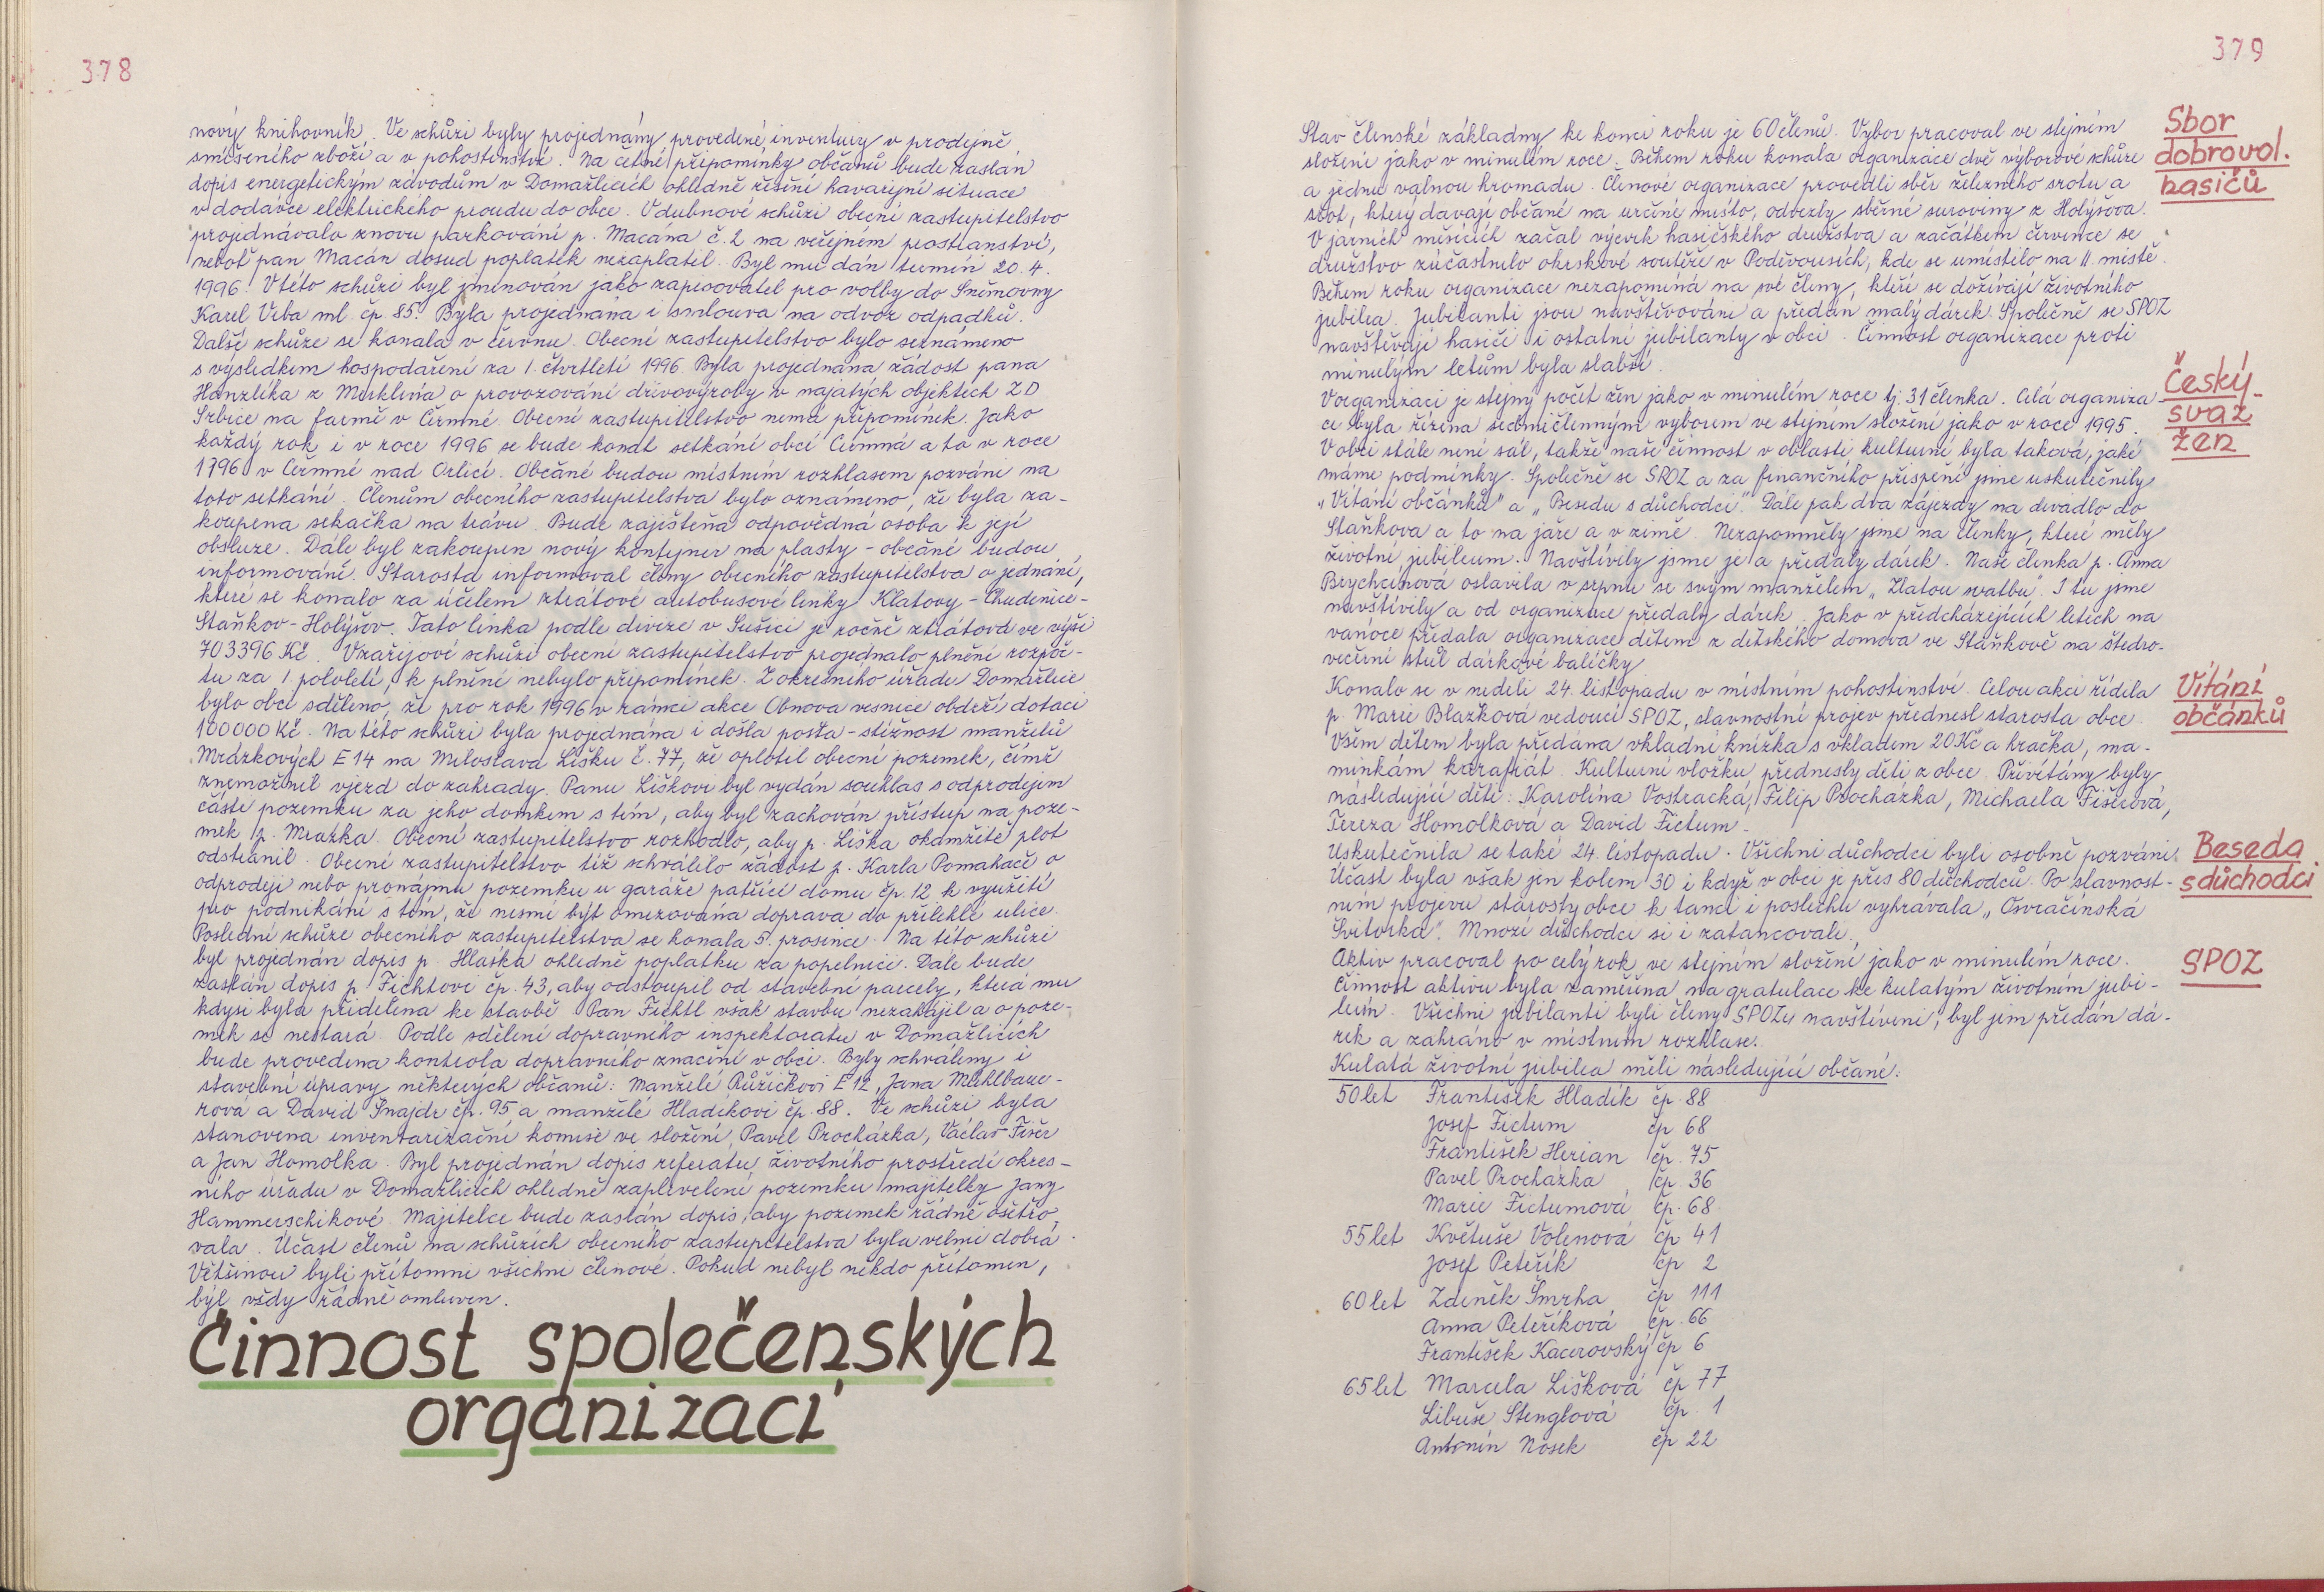 378
nový knihovník. Ve schůzi byly projednány provedené inventury v prodejně
smíšeného zboží a v pohostinství. Na četné připomínky občanů bude zaslán
dopis energetickým závodům v Domažlicích ohledně řešení havarijní situace
v dodávce elektrického proudu do obce. V dubnové schůzi obecní zastupitelstvo
projednávalo znovu parkování p. Macána č. 2 na veřejném prostranství,
neboť pan Macán dosud poplatek nezaplatil. Byl mu dán termín 20. 4.
1996. V této schůzi byl jmenován jako zapisovatel pro volby do Sněmovny
Karel Vrba ml. čp 85. Byla projednána i smlouva na odvoz odpadků.
Další schůze se konala v červnu. Obecní zastupitelstvo bylo seznámeno
s výsledkem hospodaření za 1. čtvrtletí 1996. Byla projednána žádost pana
Hanzlíka z Merklína o provozování dřevovýroby v najatých objektech ZD
Srbice na farmě v Čermné. Obecní zastupitelstvo nemá připomínek. Jako
každý rok i v roce 1996 se bude konat setkání obcí Čermná a to v roce
1996 v Čermné nad Orlicí. Občané budou místním rozhlasem pozváni na
toto setkání. Členům obecního zastupitelstva bylo oznámeno, že byla za-
koupena sekačka na trávu. Bude zajištěna odpovědná osoba k její
obsluze. Dále byl zakoupen nový kontejner na plasty - občané budou
informováni. Starosta informoval členy obecního zastupitelstva o jednání,
které se konalo za účelem ztrátové autobusové linky Klatovy - Chudenice -
Staňkov - Holýšov. Tato linka podle divize v Sušici je ročně ztrátová ve výši
703396 Kč. V zářijové schůzi obecní zastupitelstvo projednalo plnění rozpoč-
tu za 1. pololetí, k plnění nebylo připomínek. Z okresního úřadu Domažlice
bylo obci sděleno, že pro rok 1996 v rámci akce Obnova vesnice obdrží dotaci
100000 Kč. Na této schůzi byla projednána i došlá pošta - stížnost manželů
Mrázkových E 14 na Miloslava Lišku č. 77, že oplotil obecní pozemek, čímž
znemožnil vjezd do zahrady. Panu Liškovi byl vydán souhlas s odprodejem
části pozemku za jeho domkem s tím, aby byl zachován přístup na poze-
mek p. Mrázka. Obecní zastupitelstvo rozhodlo, aby p. Liška okamžitě plot
odstranil. Obecní zastupitelstvo též schválilo žádost p. Karla Pomahače o
odprodeji nebo pronájmu pozemku u garáže patřící domu čp. 12 k využití
pro podnikání s tím, že nesmí být omezována doprava do přilehlé ulice.
Poslední schůze obecního zastupitelstva se konala 5. prosince. Na této schůzi
byl projednán dopis p. Hlaska ohledně poplatku za popelnici. Dále bude
zaslán dopis p. Fichtlovi čp. 43, aby odstoupil od stavební parcely, která mu
kdysi byla přidělena ke stavbě. Pan Fichtl však stavbu nezahájil a o poze-
mek se nestará. Podle sdělení dopravního inspektorátu v Domažlicích
bude provedena kontrola dopravního značení v obci. Byly schváleny i
stavební úpravy některých občanů: Manželé Růžičkovi E 12, Jana Mühlbaue-
rová a David Šnajdr čp. 95 a manželé Hladíkovi čp. 88. Ve schůzi byla
stanovena inventarizační komise ve složení Pavel Procházka, Václav Fišer
a Jan Homolka. Byl projednán dopis referátu životního prostředí okres-
ního úřadu v Domažlicích ohledně zaplevelení pozemku majitelky Jany
Hammerschikové. Majitelce bude zaslán dopis, aby pozemek řádně ošetřo-
vala. Účast členů na schůzích obecního zastupitelstva byla velmi dobrá.
Většinou byli přítomni všichni členové. Pokud nebyl někdo přítomen,
byl vždy řádně omluven.
Činnost společenských
organizací
379
Sbor
dobrovol.
hasičů
Stav členské základny ke konci roku je 60 členů. Výbor pracoval ve stejném
složení jako v minulém roce. Během roku konala organizace dvě výborové schůze
a jednu valnou hromadu. Členové organizace provedli sběr železného šrotu a
šrot, který dávají občané na určené místo, odvezly sběrné suroviny z Holýšova.
V jarních měsících začal výcvik hasičského družstva a začátkem července se
družstvo zúčastnilo okrskové soutěže v Poděvousích, kde se umístilo na 11. místě.
Během roku organizace nezapomíná na své členy, kteří se dožívají životního
jubilea. Jubilanti jsou navštěvováni a předán malý dárek. Společně se SPOZ
navštěvují hasiči i ostatní jubilanty v obci. Činnost organizace proti
minulým letům byla slabší.
Český
svaz
žen
V organizaci je stejný počet žen jako v minulém roce tj. 31 členka. Celá organiza-
ce byla řízena sedmičlenným výborem ve stejném složení jako v roce 1995.
V obci stále není sál, takže naše činnost v oblasti kulturní byla taková, jaké
máme podmínky. Společně se SPOZ a za finančního přispění jsme uskutečnily
„Vítání občánků" a „Besedu s důchodci". Dále pak dva zájezdy na divadlo do
Staňkova a to na jaře a v zimě. Nezapomněly jsme na členky, které měly
životní jubileum. Navštívily jsme je a předaly dárek. Naše členka p. Anna
Brychcínová oslavila v srpnu se svým manželem „Zlatou svatbu". I tu jsme
navštívily a od organizace předaly dárek. Jako v předcházejících letech na
vánoce předala organizace dětem z dětského domova ve Staňkově na štědro-
večerní stůl dárkové balíčky
Vítání
občánků
Konalo se v neděli 24. listopadu v místním pohostinství. Celou akci řídila
p. Marie Blažková vedoucí SPOZ, slavnostní projev přednesl starosta obce.
Všem dětem byla předána vkladní knížka s vkladem 20 Kč a hračka, ma-
minkám karafiát. Kulturní vložku přednesly děti z obce. Přivítány byly
následující děti: Karolína Vostracká, Filip Procházka, Michaela Fišerová,
Tereza Homolková a David Fictum.
Beseda
s důchodci
Uskutečnila se také 24. listopadu. Všichni důchodci byli osobně pozváni.
Účast byla však jen kolem 30 i když v obci je přes 80 důchodců. Po slavnost-
ním projevu starosty obce k tanci i poslechu vyhrávala „Osvračínská
Švitorka". Mnozí důchodci si i zatancovali.
SPOZ
Aktiv pracoval po celý rok ve stejném složení jako v minulém roce.
Činnost aktivu byla zaměřena na gratulace ke kulatým životním jubi-
leím. Všichni jubilanti byli členy SPOZu navštíveni, byl jim předán dá-
rek a zahráno v místním rozhlase.
Kulatá životní jubilea měli následující občané:
50 let František Hladík čp. 88
Josef Fictum čp. 68
František Herian čp. 75
Pavel Procházka čp. 36
Marie Fictumová čp. 68
55 let Květuše Volenová čp 41
Josef Peteřík čp 2
60 let Zdeněk Šmrha čp 111
Anna Peteříková čp. 66
František Kacerovský čp 6
65 let Marcela Lišková čp 77
Libuše Stenglová čp. 1
Antonín Nosek čp 22